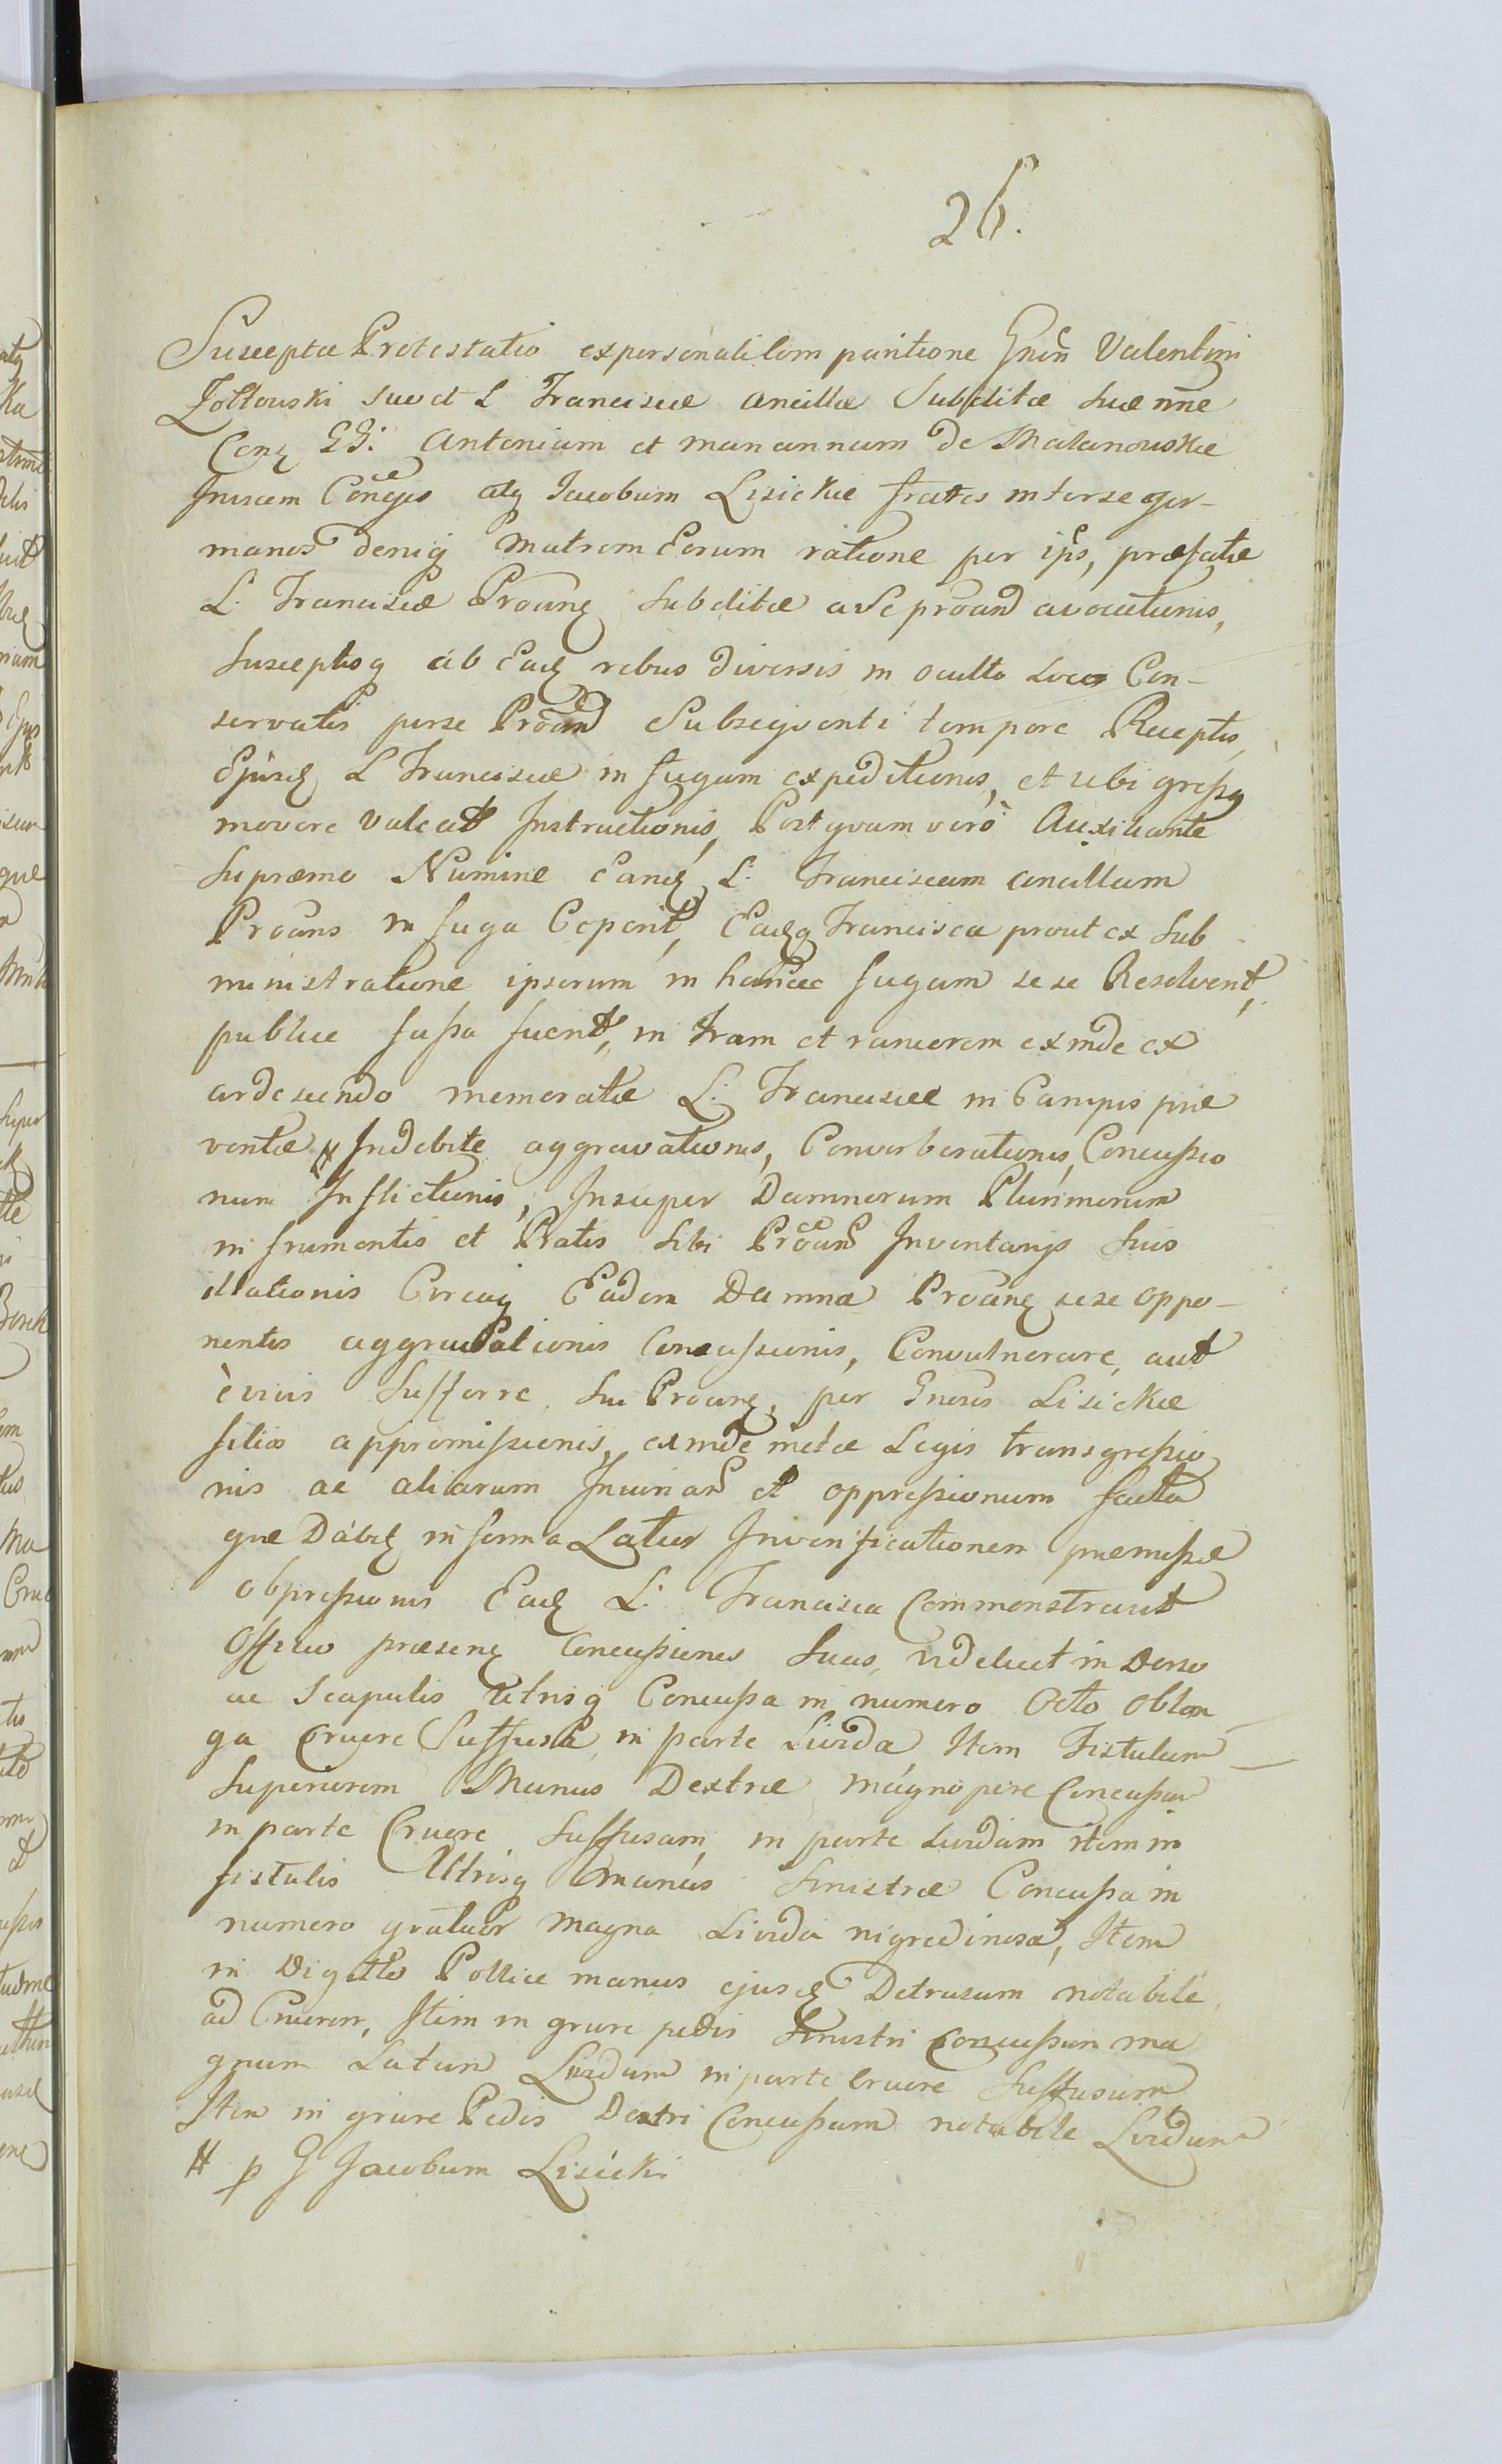 26.
Suscepta Protestatio ex personali Comparitione Gnosi Valentini
Zołtowski suo et L Franciscæ ancillæ Subditæ suæ nne
Conq GG: Antonium et Mariannam de Malanowskie
Invicem Conges atq Jacobum Lisickie fratres inter se ger-
manos deniq Matrem Eorum ratione per ips, præfatæ
L. Franciscæ Proanq Subditæ a Se proand avocationis,
Susceptisq ab Eadq rebus diversis in oculto Loco Con-
servatis per se Proand Subsequenti tempore Receptis,
Ejusdq L Franciscæ in fugam expeditionis, et ubi greßq
movere valeat Instructionis, Postquam verò Auxiliante
Supremo Numine Eandq L: Franciscam ancillam
Proans in fuga Ceperit, Eadqq Francisca prout ex Sub
ministratione ipsorum in hancce fugam se se Resolverit,
publice faßa fuerit, in Iram et rancorem exinde ex
ardescendo memoratæ L. Franciscæ in Campis præ
ventæ # Indebite aggravationis, Converberationis, Concußio
num Inflictionis, Insuper Damnorum Plurimorum
in frumentis et Pratis Sibi Proan Inventarijs Suis
illationis Circaq Eadem Damna Proanq sese oppo-
nentis aggravationis Concußionis, Convulnerare, aut
è vivis Sufferre Sui Proanq, per Gnosos Lisickie
filios appromißionis, exinde metæ Legis transgreßio
nis ac aliarum Injuriar et oppreßionum facta
que Dabit in forma Latior In verificationem præmißæ
obpreßionis Eadq L: Francisca Commonstravit
Officio præsenq Concußiones Suas, videlicet in Dorso
ac Scapulis utrisq Concußa in numero Octo oblon
ga Cruore Suffusa in parte Livida Item Fistulam
Superiorem Manus Dextræ magnopere Concußam
in parte Cruore Suffusam, in parte Lividam item in
fistulis Utrisq manûs Sinistræ Concußa in
numero quatuor magna Livida nigredinosa, Item
in Digitto Pollice manus ejusdq Detrusum notabile
ad Cruorem, Item in grure pedis Sinistri Concußum ma
gnum Latum Lividum in parte cruore Suffusum
Item in grure Pedis Dextri Concußum notabile Lividum
# p G Jacobum Lisicki